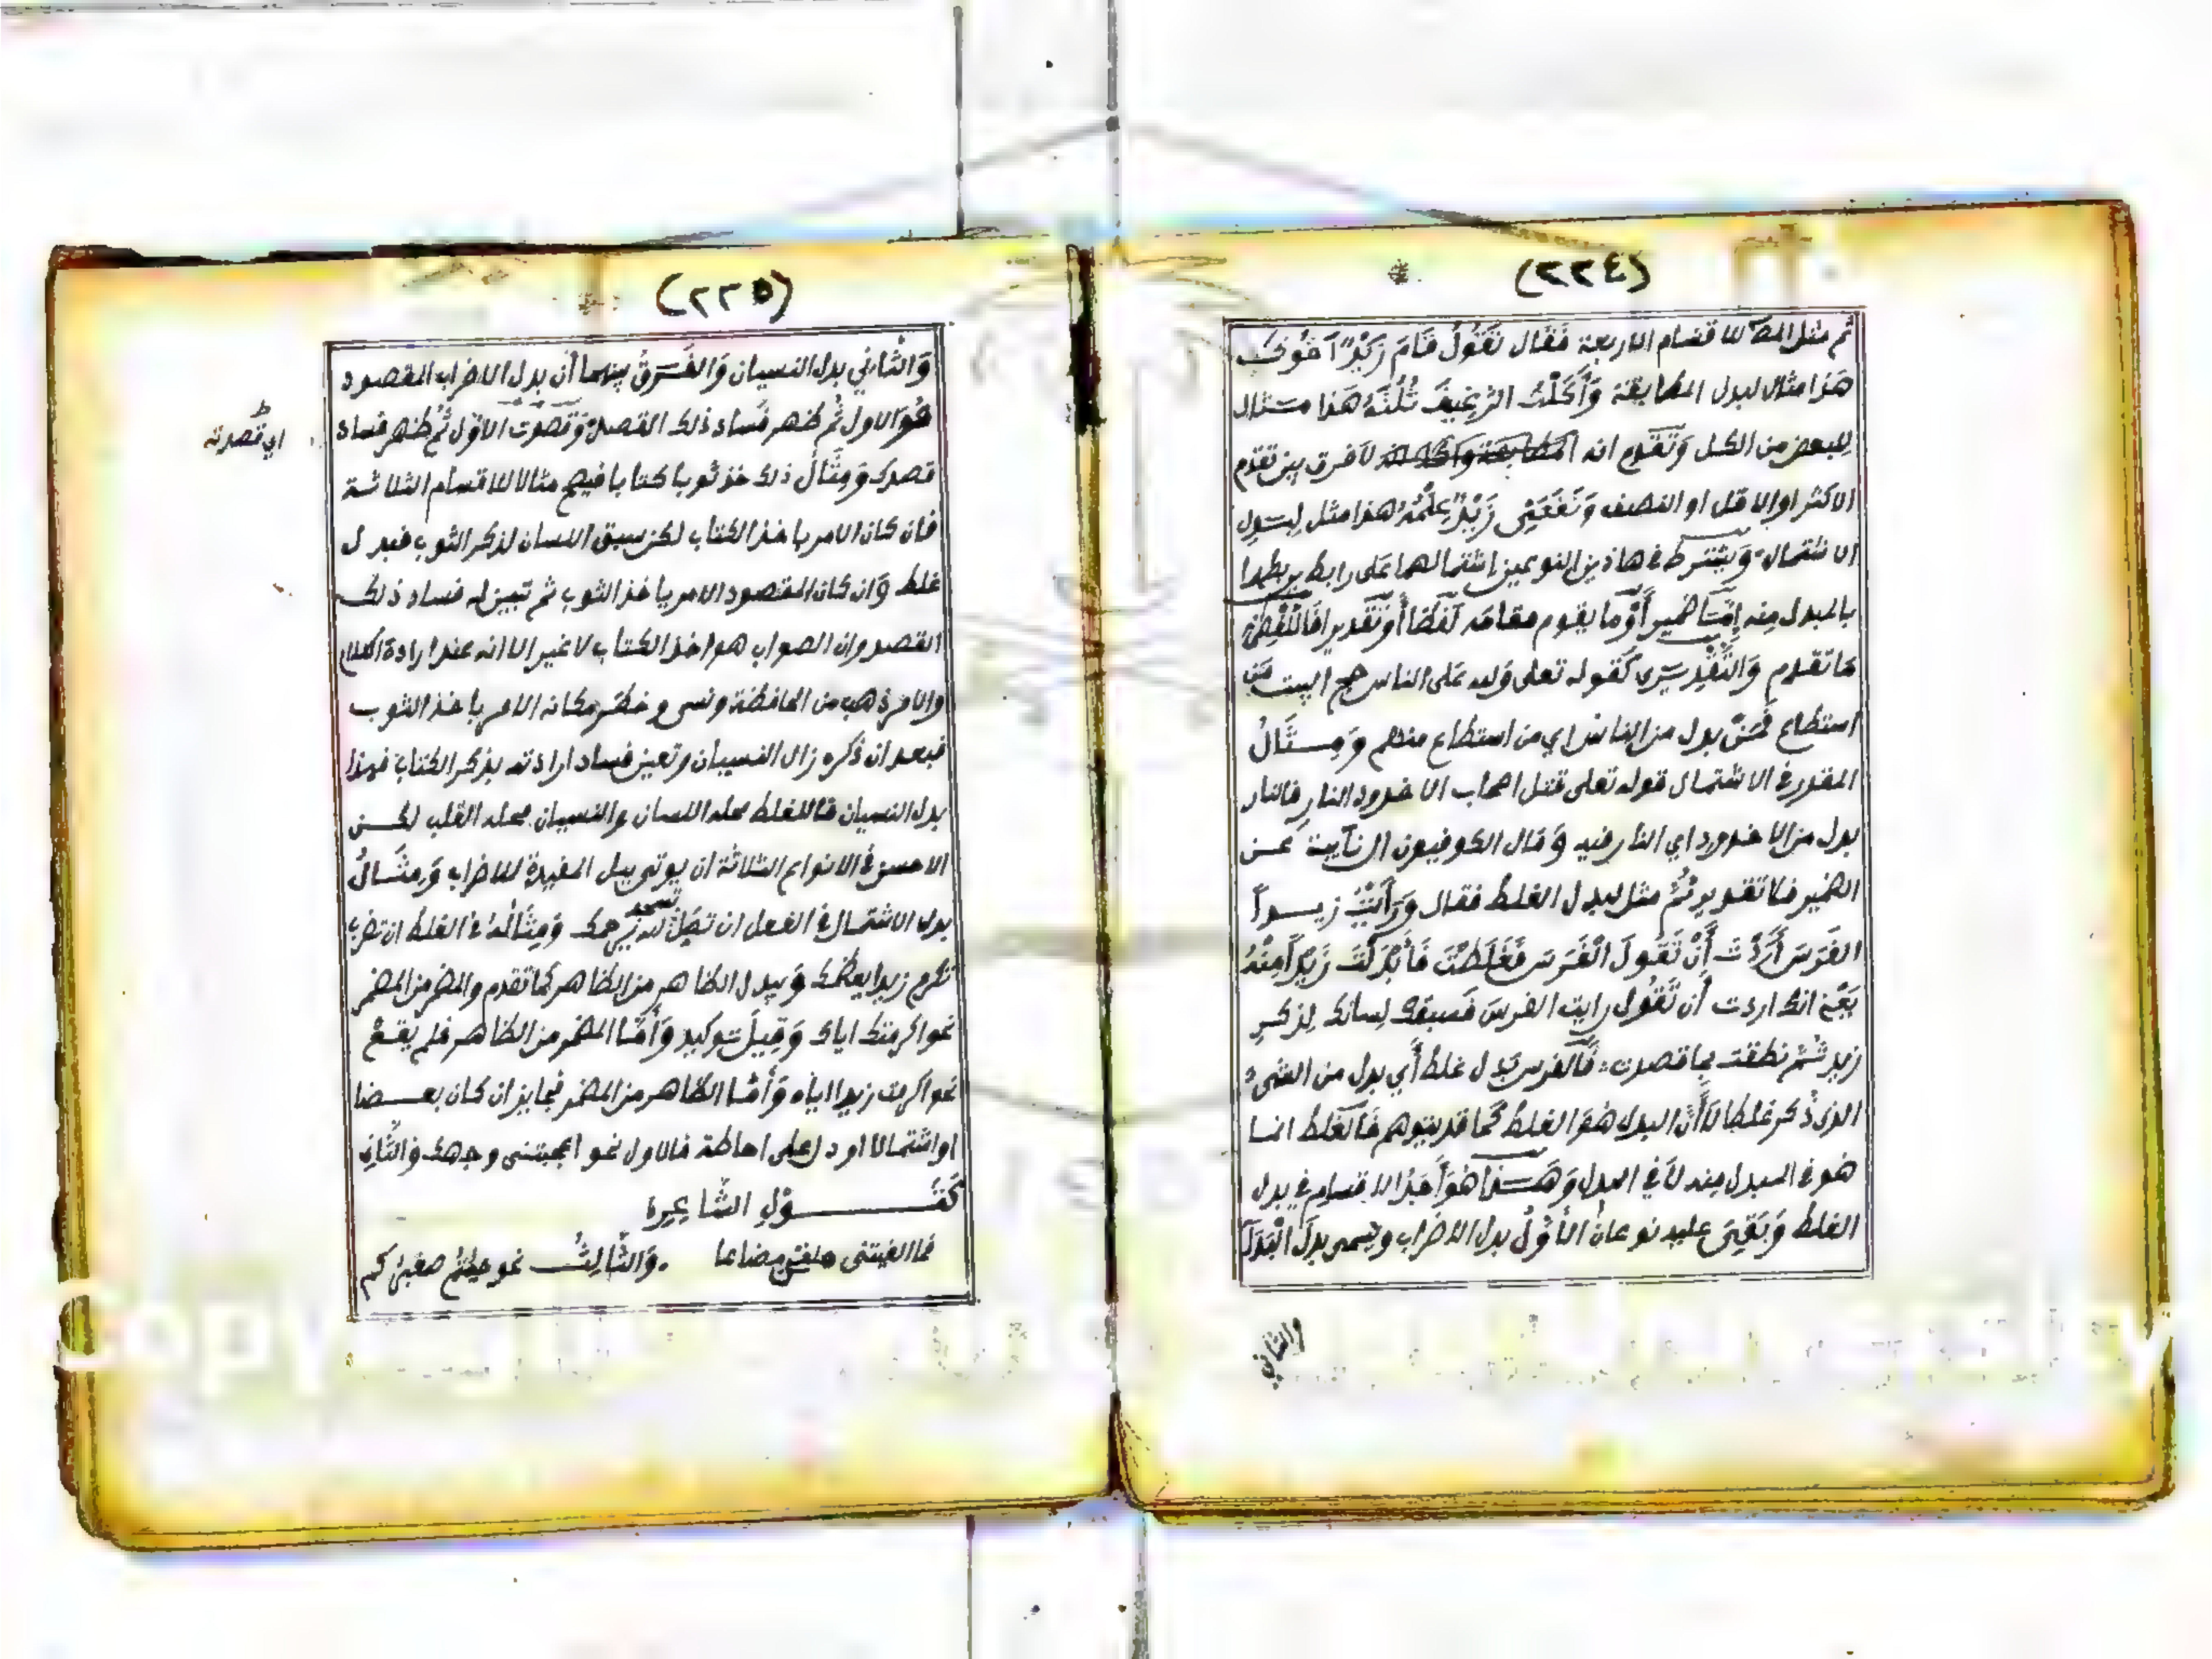 (٢٢٤)
ثم مثل المصَ للاقسام الاربعة فَقَال نَقُوْلُ قَامَ زَيْدٌ اَخُوْكَ
هَذا مثال لبدل المطابقة وَأَكَلْتُ الرَّغِيْفَ ثُلُثَهُ هَذا مثال
لِلبعض من الكل وَتَقَدم انه لاَ فرق بين تقدم
الاكثر اوالاقل او النصف وَنَفَعَنِى زَيْدٌ عِلْمُهُ هذا مثل لبدل
الاشتمال وَيشترط في هاذين النوعين اشتمالهما عَلى رابط يربطهما
بالمبدل مِنه إِمَّا ضمير أَوْ ما يقوم مقامه لَفظا أَو تَقديرا فَاللفظي
مَا تقدم وَالتَّقْدِيرِى كَقوله تعلى وَلله عَلى الناس حج البيت مَن
استطاع فَمَنْ بدل من الناس اي من استطاع منهم وَمِثَالُ
المقدر في الاشتمال قوله تعلى قتل اصحاب الاخدود النار فالنار
بدل من الاخدود اي النار فيه وَقال الكوفيون ال نآيبة عَن
الضمير فلا تقدير ثُمَّ مثل لبدل الغلط فقال وَرَأَيْتُ زيدا
الفَرَسَ أَرَدْتَ أَنْ تَقُولَ الْفَرَسَ فَغَلَطْتَ فَأَبْدَلْتَ زَيْدًا مِنْهُ
يَعْنِي انك اردت أن تَقُول رايت الفرسَ فَسبقك لِسانك لِذكر
زيد ثُمَّ نطقت بما قصدت فَالفرس بَدل غلط أَي بدل من الشىء
الذى ذُكر غلطا لاَ أَنَّ البدل هُوَ الغلط كَما قد يتوهم فَالغلط انما
هو في المبدل مِنه لاَ في البدل وَهَذا هُوَ أَحَدُ الاقسام في بدل
الغلط وَبَقِيَ عليه نوعان الأَوَّلُ بدل الاضراب ويسمى بدل الْبَدَا
والثاني
(٢٢٥)
وَالثَّانِي بدل النسيان وَالفَرَقُ بينهما أن بدل الاضراب المقصود
هُوَ الاول ثُم ظهر فَساد ذلك القصد وَقصدت الاوّل ثُم ظهر فساد
اي قصدته
قصدك وَمِثَالُ ذلك خذ ثوبا كتابا فيصح مثالا للاقسام الثلاثة
فان كان الامر باخذ الكتاب لكن سبق اللسان لذكر الثوب فبدل
غلط وَان كان المقصود الامر باخذ الثوب ثم تبين له فساد ذلك
القصد وان الصواب هو اخذ الكتاب لا غير الا انه عند ارادة الكلام
والامر ذهب من الحافظة ونسى وخطَر مكانه الامر باخذ الثوب
فبعد ان ذكره زال النسيان وتعين فساد ارادته بذكر الكتاب فهذا
بدل النسيان فاللغلط محله اللسان والنسيان محله القلب لكن
الاحسن في الانواع الثلاثة ان يوتى ببل المفيدة للاضراب وَمِثَالُ
بدل الاشتمال في الفعل ان تصَلِّ تسجد لله يرحمك وَمِثَالُهُ في الغلط ان تضرب
تكرم زيدا يعظمك وَيبدل الظاهر من الظاهر كما تقدم والمضمر من المضمر
نحو اكرمتك اياك وَقِيلَ توكيد وَأَمَّا المضمر من الظاهر فلم يقعْ
نحو اكرمت زيدا اياه وَأَمَّا الظاهر من المضمر فجايز ان كان بعضا
او اشتمالا او دل على احاطة فالاول نحو اعجبتنى وجهك وَالثَّانِ
كَقَوْلِ الشَّاعِرِه
فما الفيتنى حلمى مضاعا . وَالثَّالِثُ نحو جئتم صغيركم